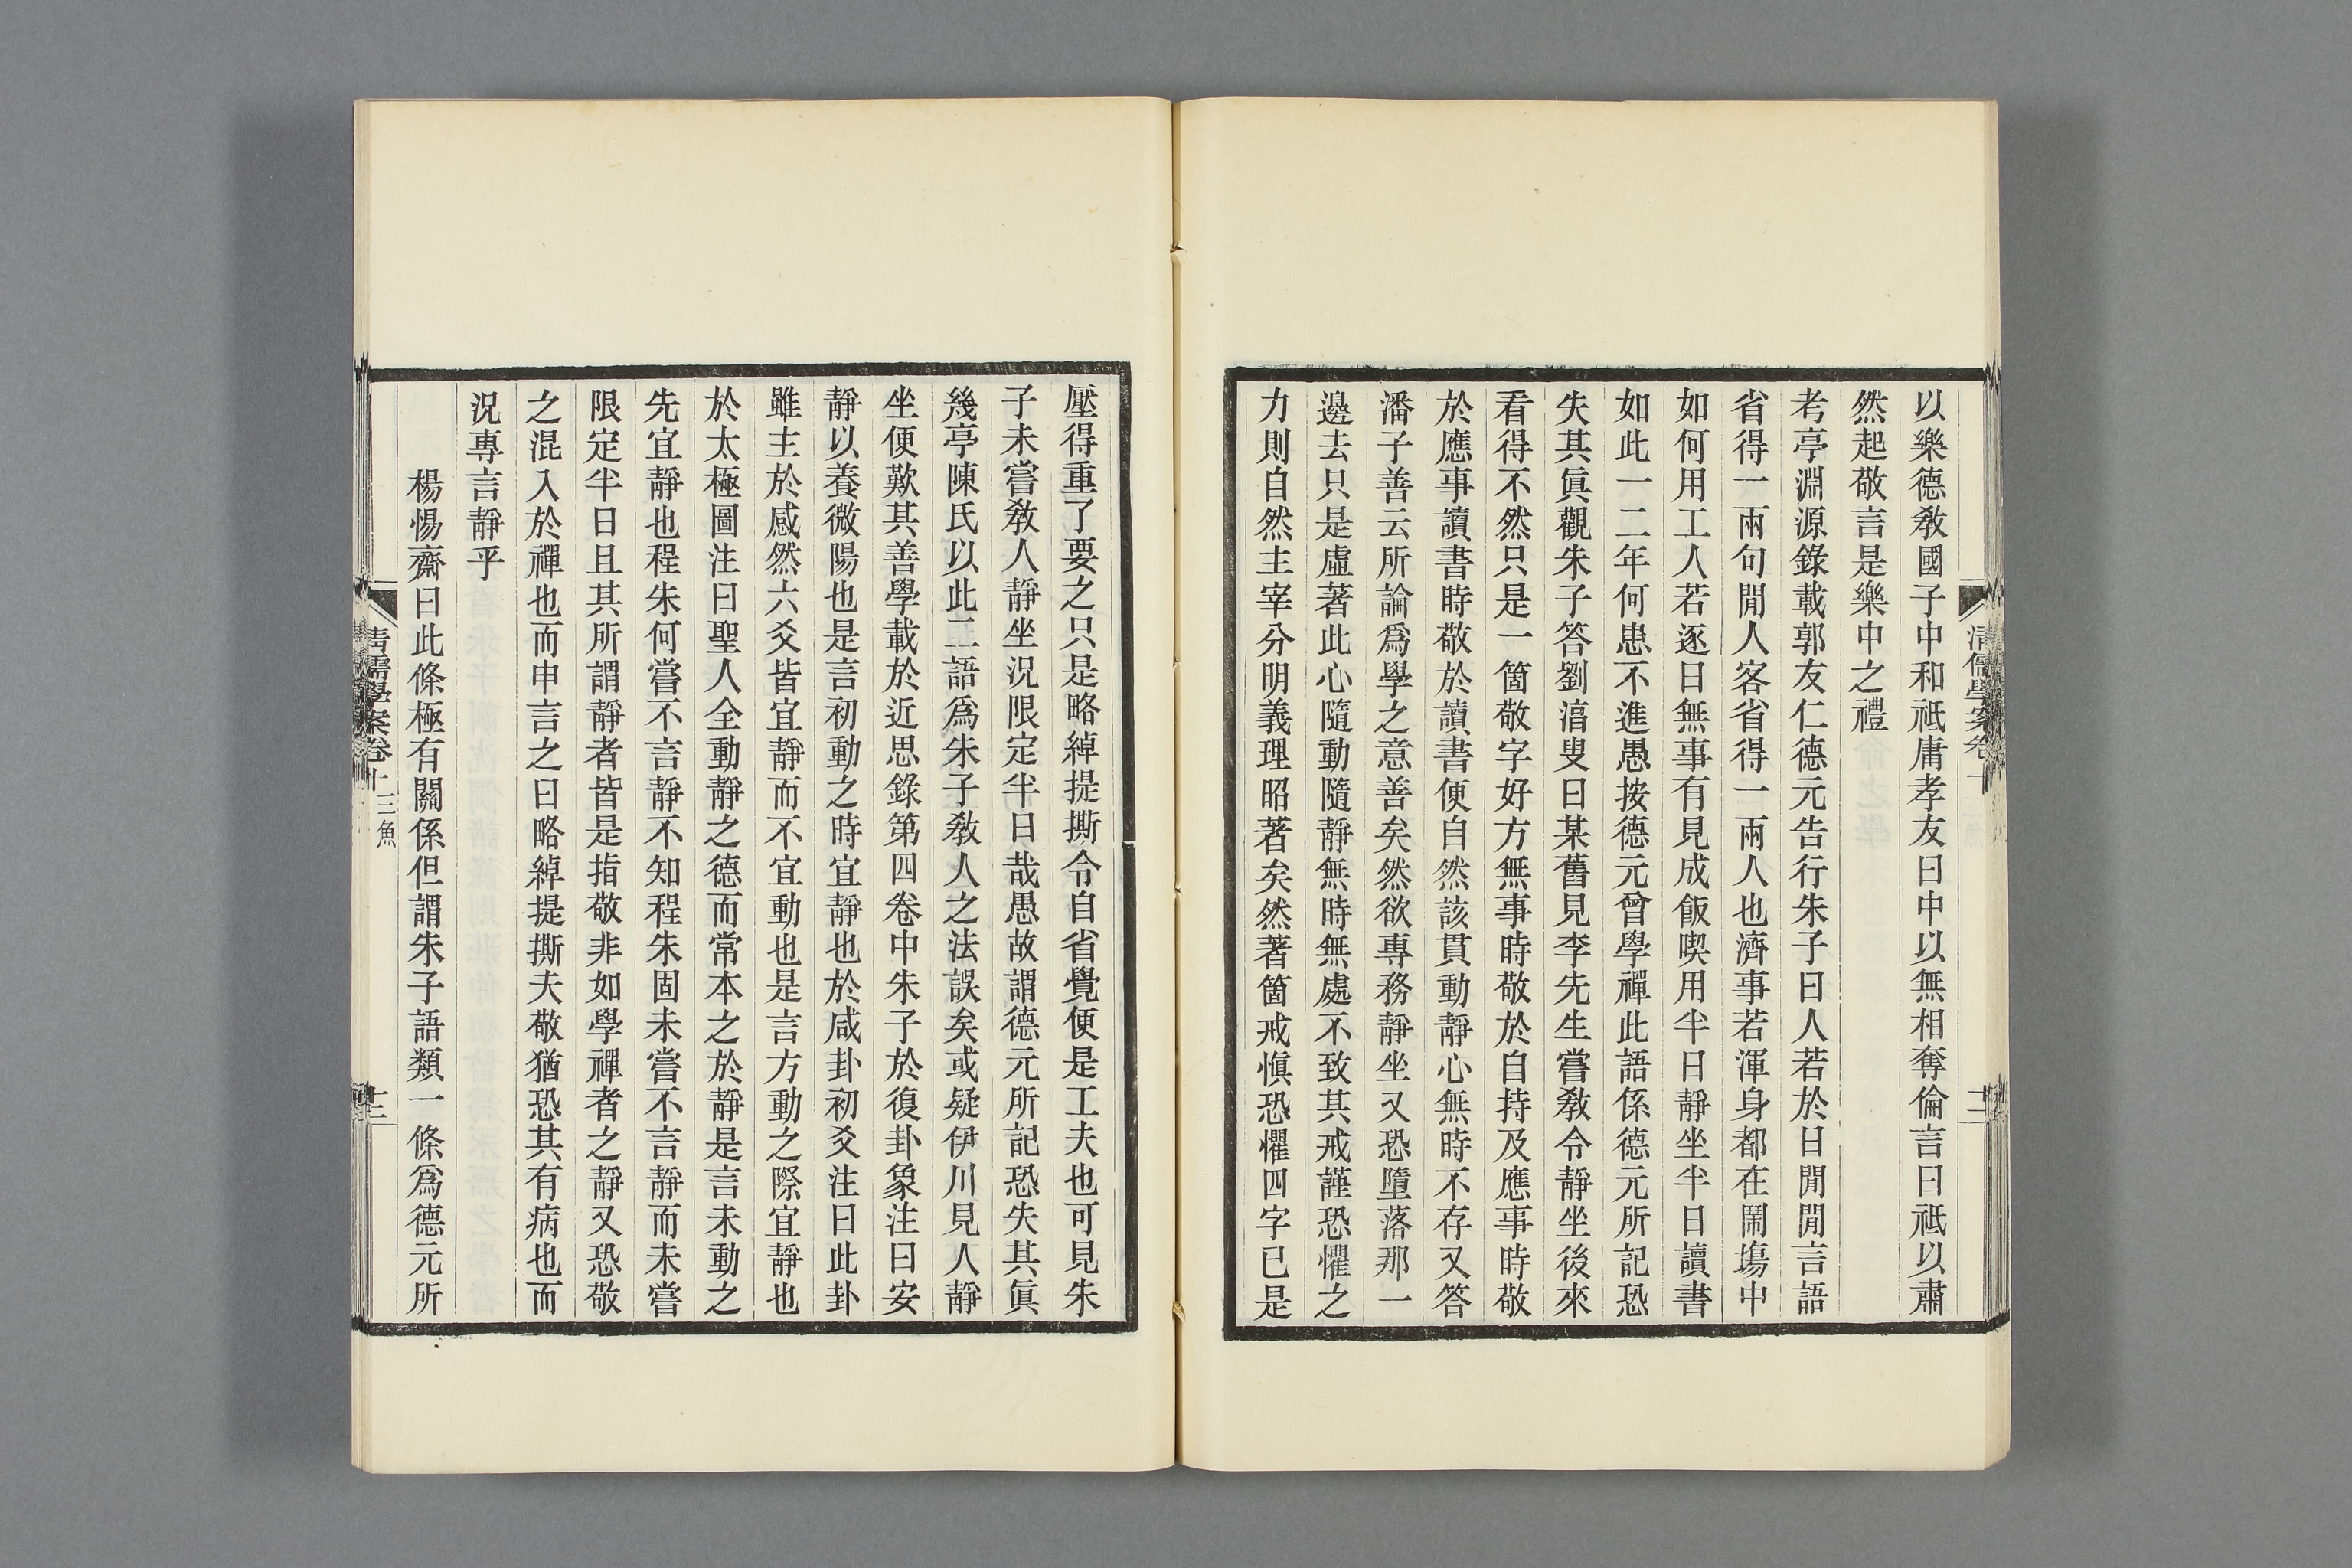 以樂德敎國子中和祗庸孝友曰中以無相奪倫言曰祗以肅
然起敬言是樂中之禮
考亭淵源錄載郭友仁德元告行朱子曰人若於日閒閒言語
省得一兩句閒人客省得一兩人也濟事若渾身都在鬧場中
如何用工人若逐日無事有見成飯喫用半日靜坐半日讀書
如此一二年何患不進愚按德元曾學禪此語係德元所記恐
失其眞觀朱子答劉淯叟曰某舊見李先生嘗敎令靜坐後來
看得不然只是一箇敬字好方無事時敬於自持及應事時敬
於應事讀書時敬於讀書便自然該貫動靜心無時不存又答
潘子善云所論爲學之意善矣然欲專務靜坐又恐墮落那一
邊去只是虛著此心隨動隨靜無時無處不致其戒謹恐懼之
力則自然主宰分明義理昭著矣然著箇戒愼恐懼四字已是
清儒學案卷十
十二
壓得重了要之只是略綽提撕令自省覺便是工夫也可見朱
子未嘗敎人靜坐況限定半日哉愚故謂德元所記恐失其眞
幾亭陳氏以此二語爲朱子敎人之法誤矣或疑伊川見人靜
坐便歎其善學載於近思錄第四卷中朱子於復卦象注曰安
靜以養微陽也是言初動之時宜靜也於咸卦初爻注曰此卦
雖主於感然六爻皆宜靜而不宜動也是言方動之際宜靜也
於太極圖注曰聖人全動靜之德而常本之於靜是言未動之
先宜靜也程朱何嘗不言靜不知程朱固未嘗不言靜而未嘗
限定半日且其所謂靜者皆是指敬非如學禪者之靜又恐敬
之混入於禪也而申言之曰略綽提撕夫敬猶恐其有病也而
況專言靜乎
楊惕齋曰此條極有關係但謂朱子語類一條爲德元所
清儒學案卷十 三魚
十二